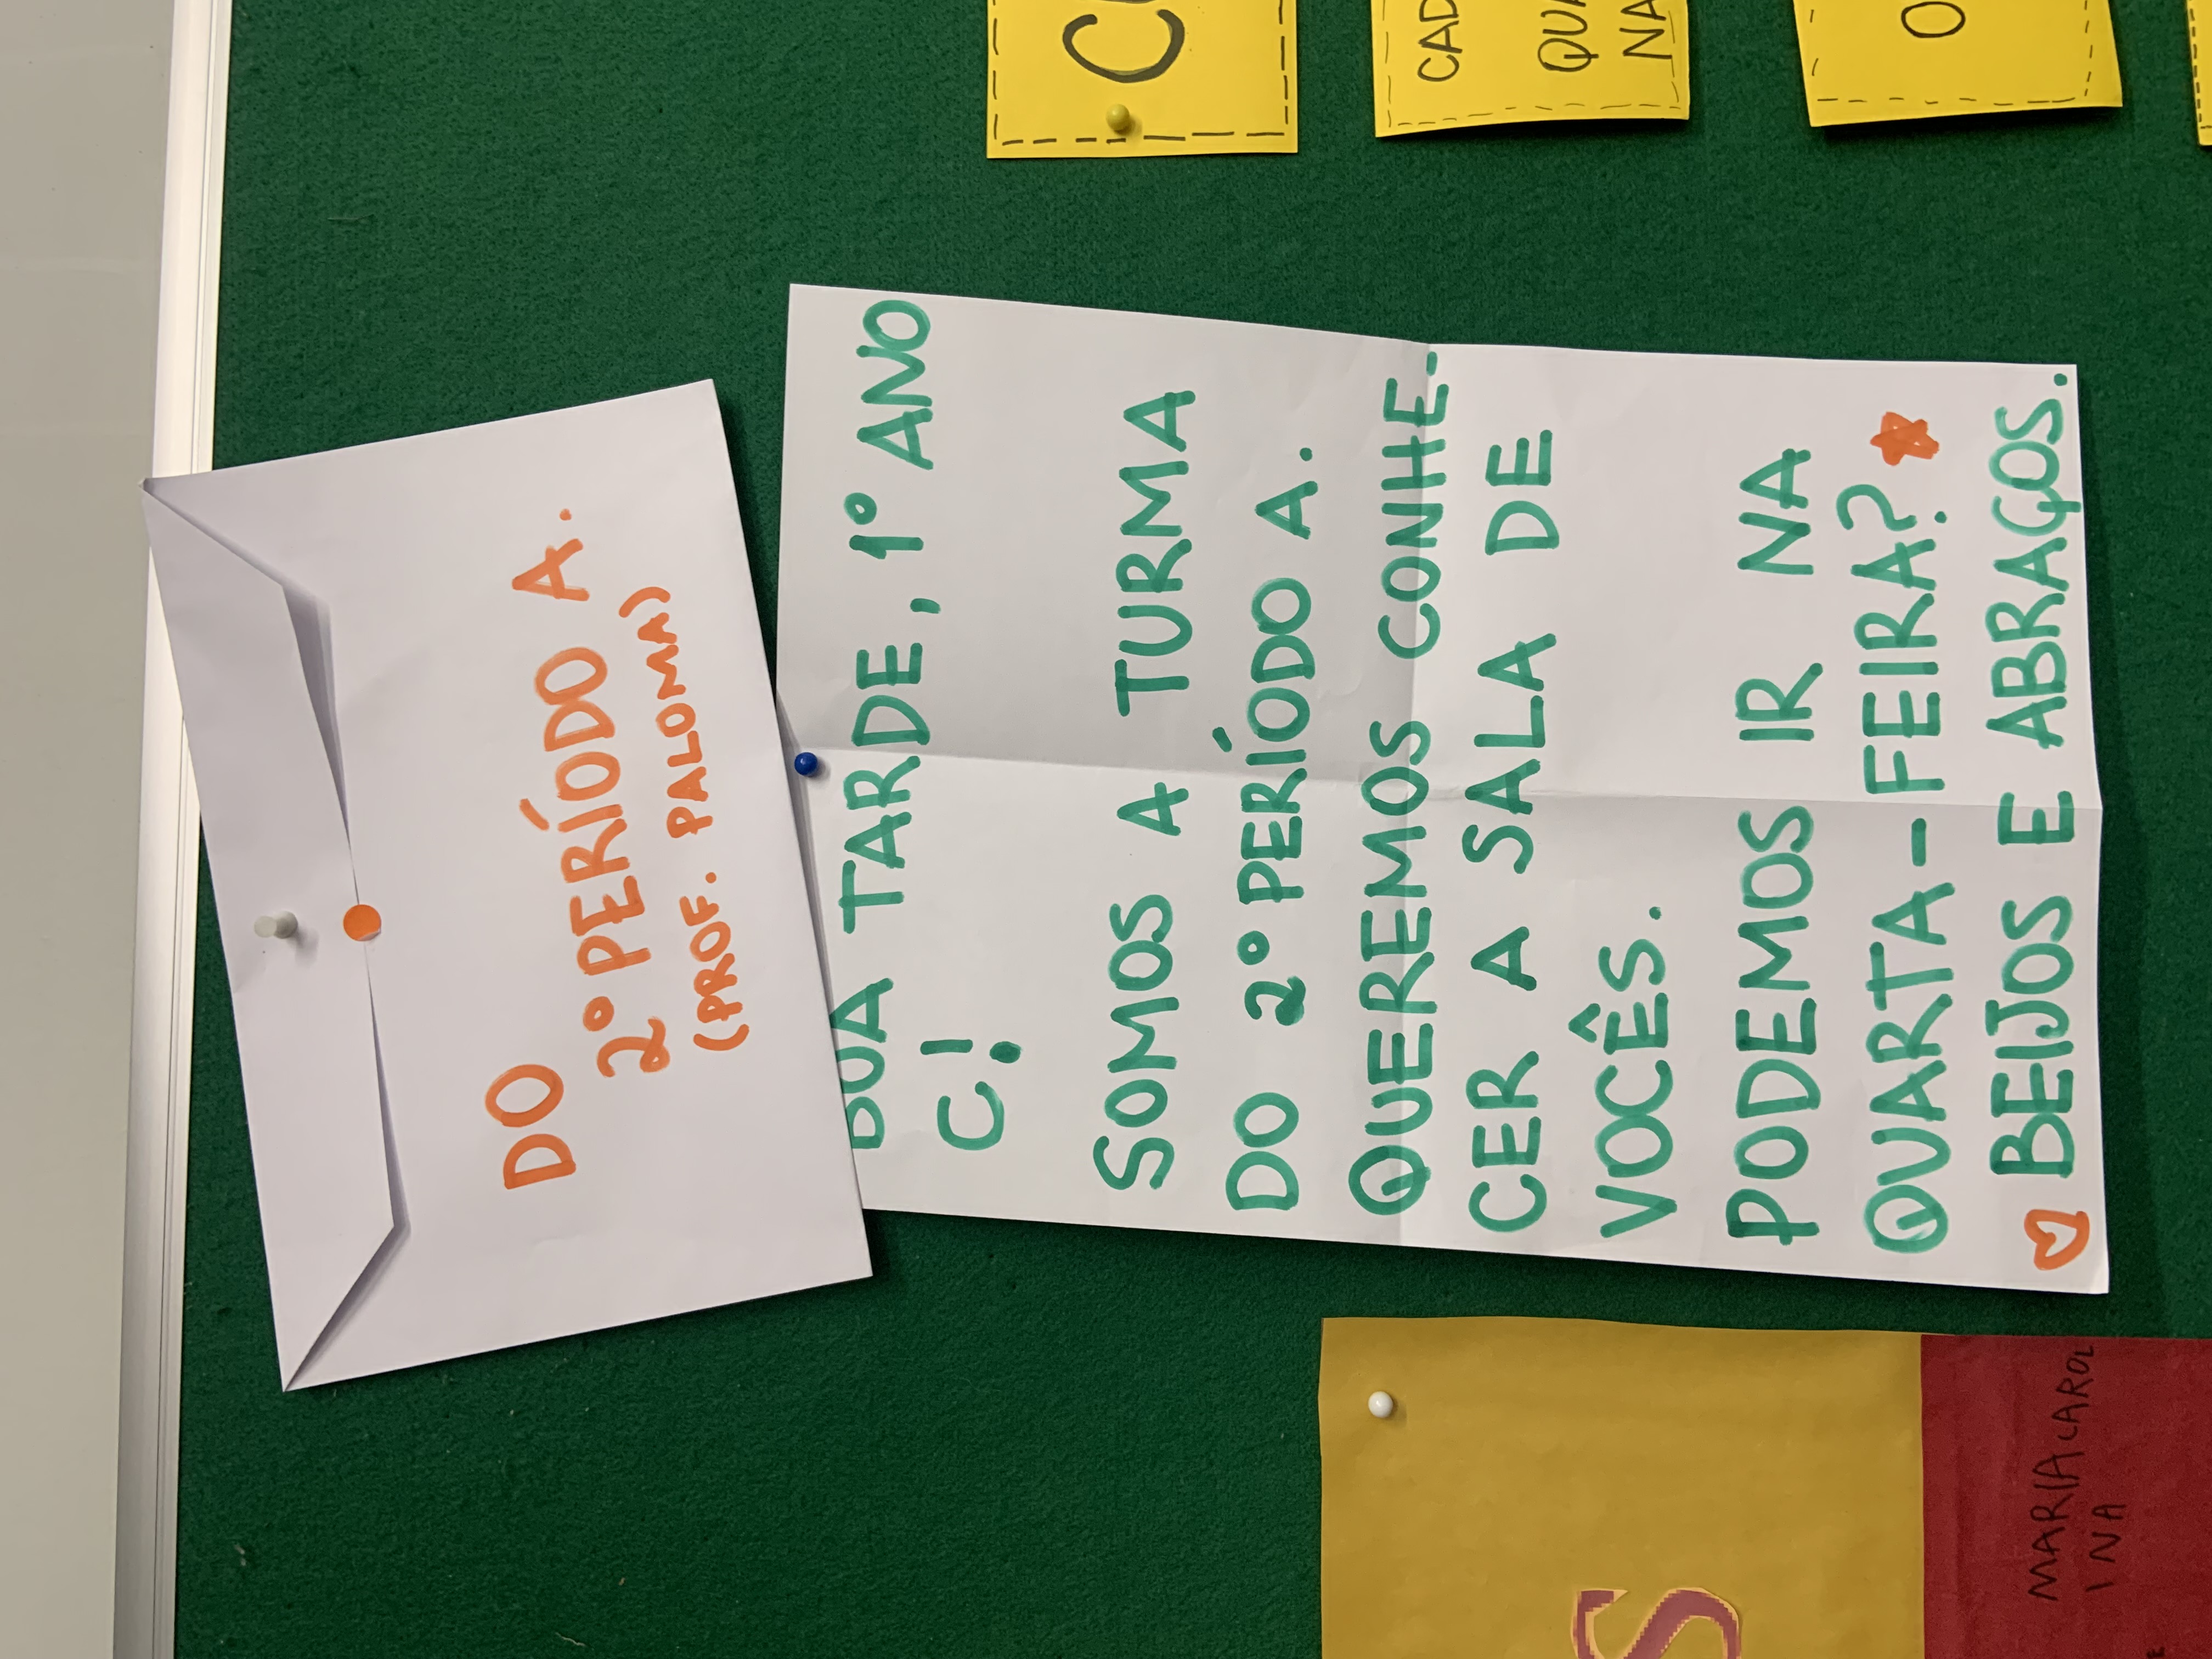 DO
2º PERÍODO A.
(PROF. PALOMA)
BOA TARDE, 1º ANO
C!
SOMOS A TURMA
DO 2º PERÍODO A.
QUEREMOS CONHE-
CER A SALA DE
VOCÊS.
PODEMOS IR NA
QUARTA-FEIRA?
BEIJOS E ABRAÇOS.
S
MARIA CAROL
INA